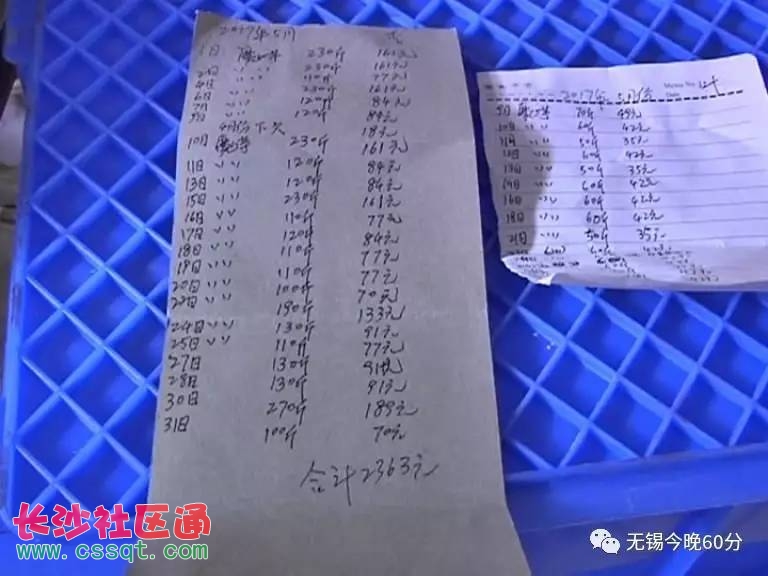 2017年5月
1日 230斤 161元
2日 〃 〃 230斤 161元
4日 〃 〃 110斤 77元
〃 〃 230斤 161元
6日 〃 〃 120斤 84元
7日 120斤 84元
4月份下欠 18元
10日 230斤 161元
11日 〃 〃 120斤 84元
13日 〃 〃 120斤 84元
15日 〃 〃 230斤 161元
16日 〃 〃 110斤 77元
17日 〃 〃 120斤 84元
18日 〃 〃 110斤 77元
19日 〃 〃 110斤 77元
20日 〃 〃 100斤 70元
22日 〃 〃 190斤 133元
24日 〃 〃 130斤 91元
25日 〃 〃 110斤 77元
27日 130斤 91元
28日 130斤 91元
30日 270斤 189元
31日 100斤 70元
合计2363元
Memo No.
Date
2017年5月份
9日 70斤 49元
10日 〃 60斤 42元
11日 〃 〃 50斤 35元
12日 〃 〃 60斤 42元
13日 〃 〃 50斤 35元
14日 〃 〃 60斤 42元
16日 〃 〃 60斤 42元
18日 〃 〃 60斤 42元
21日 〃 〃 50斤 35元
长沙社区通
www.cssqt.com
无锡今晚60分